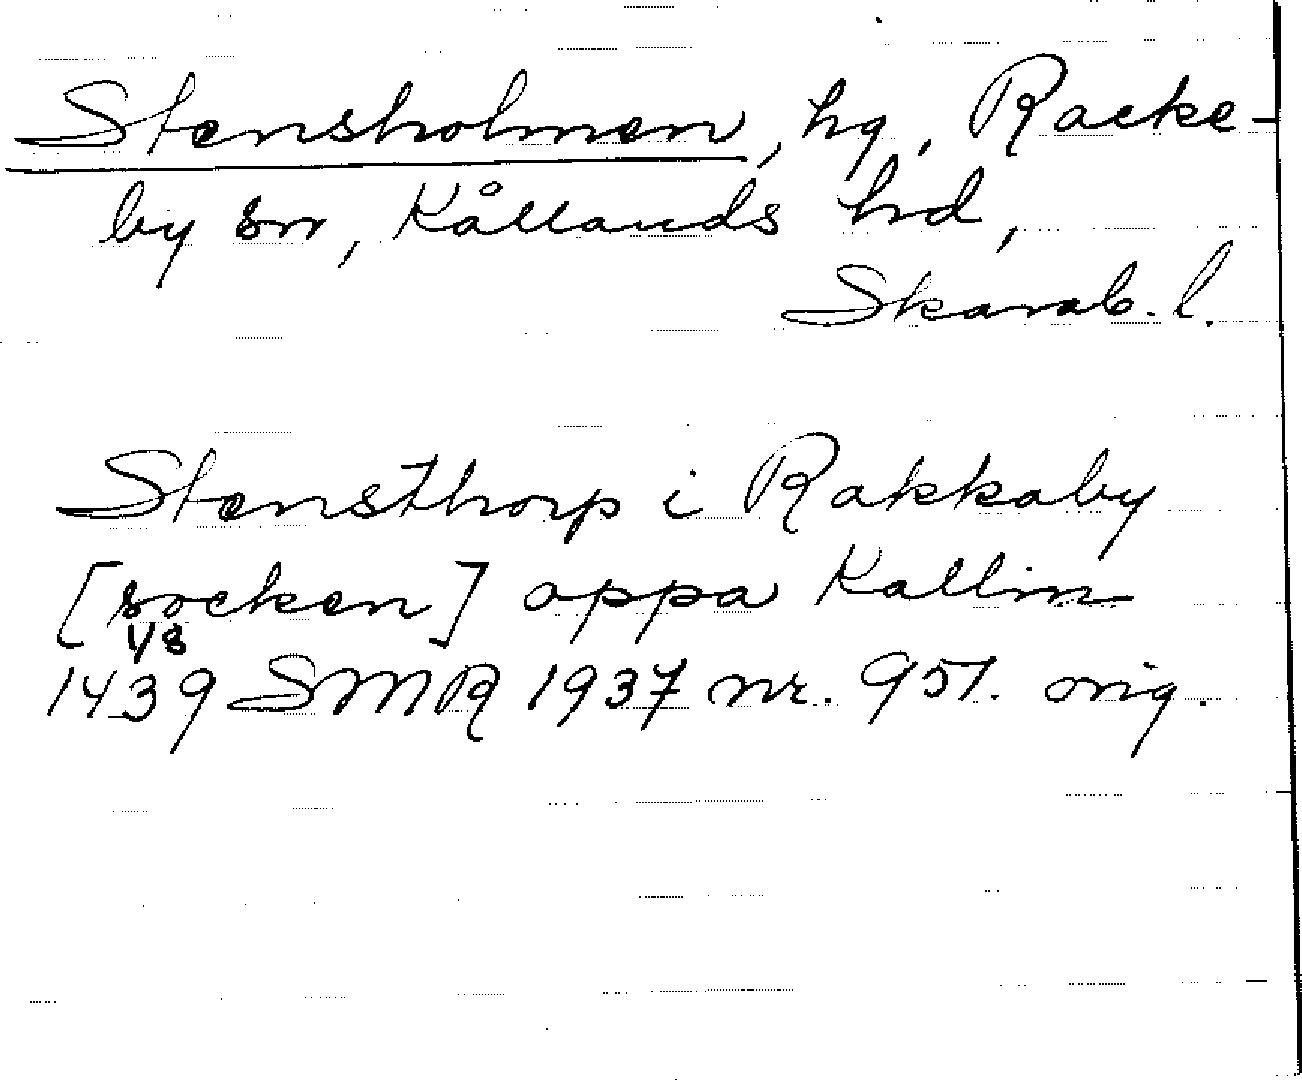 Stensholmen, hg, Racke-
by sn, Kållands hd,
Skarab. l.
Stensthorp i Rakkaby
[socken] oppa Kallin
1/8
1439 SMR 1937 nr. 951. orig.